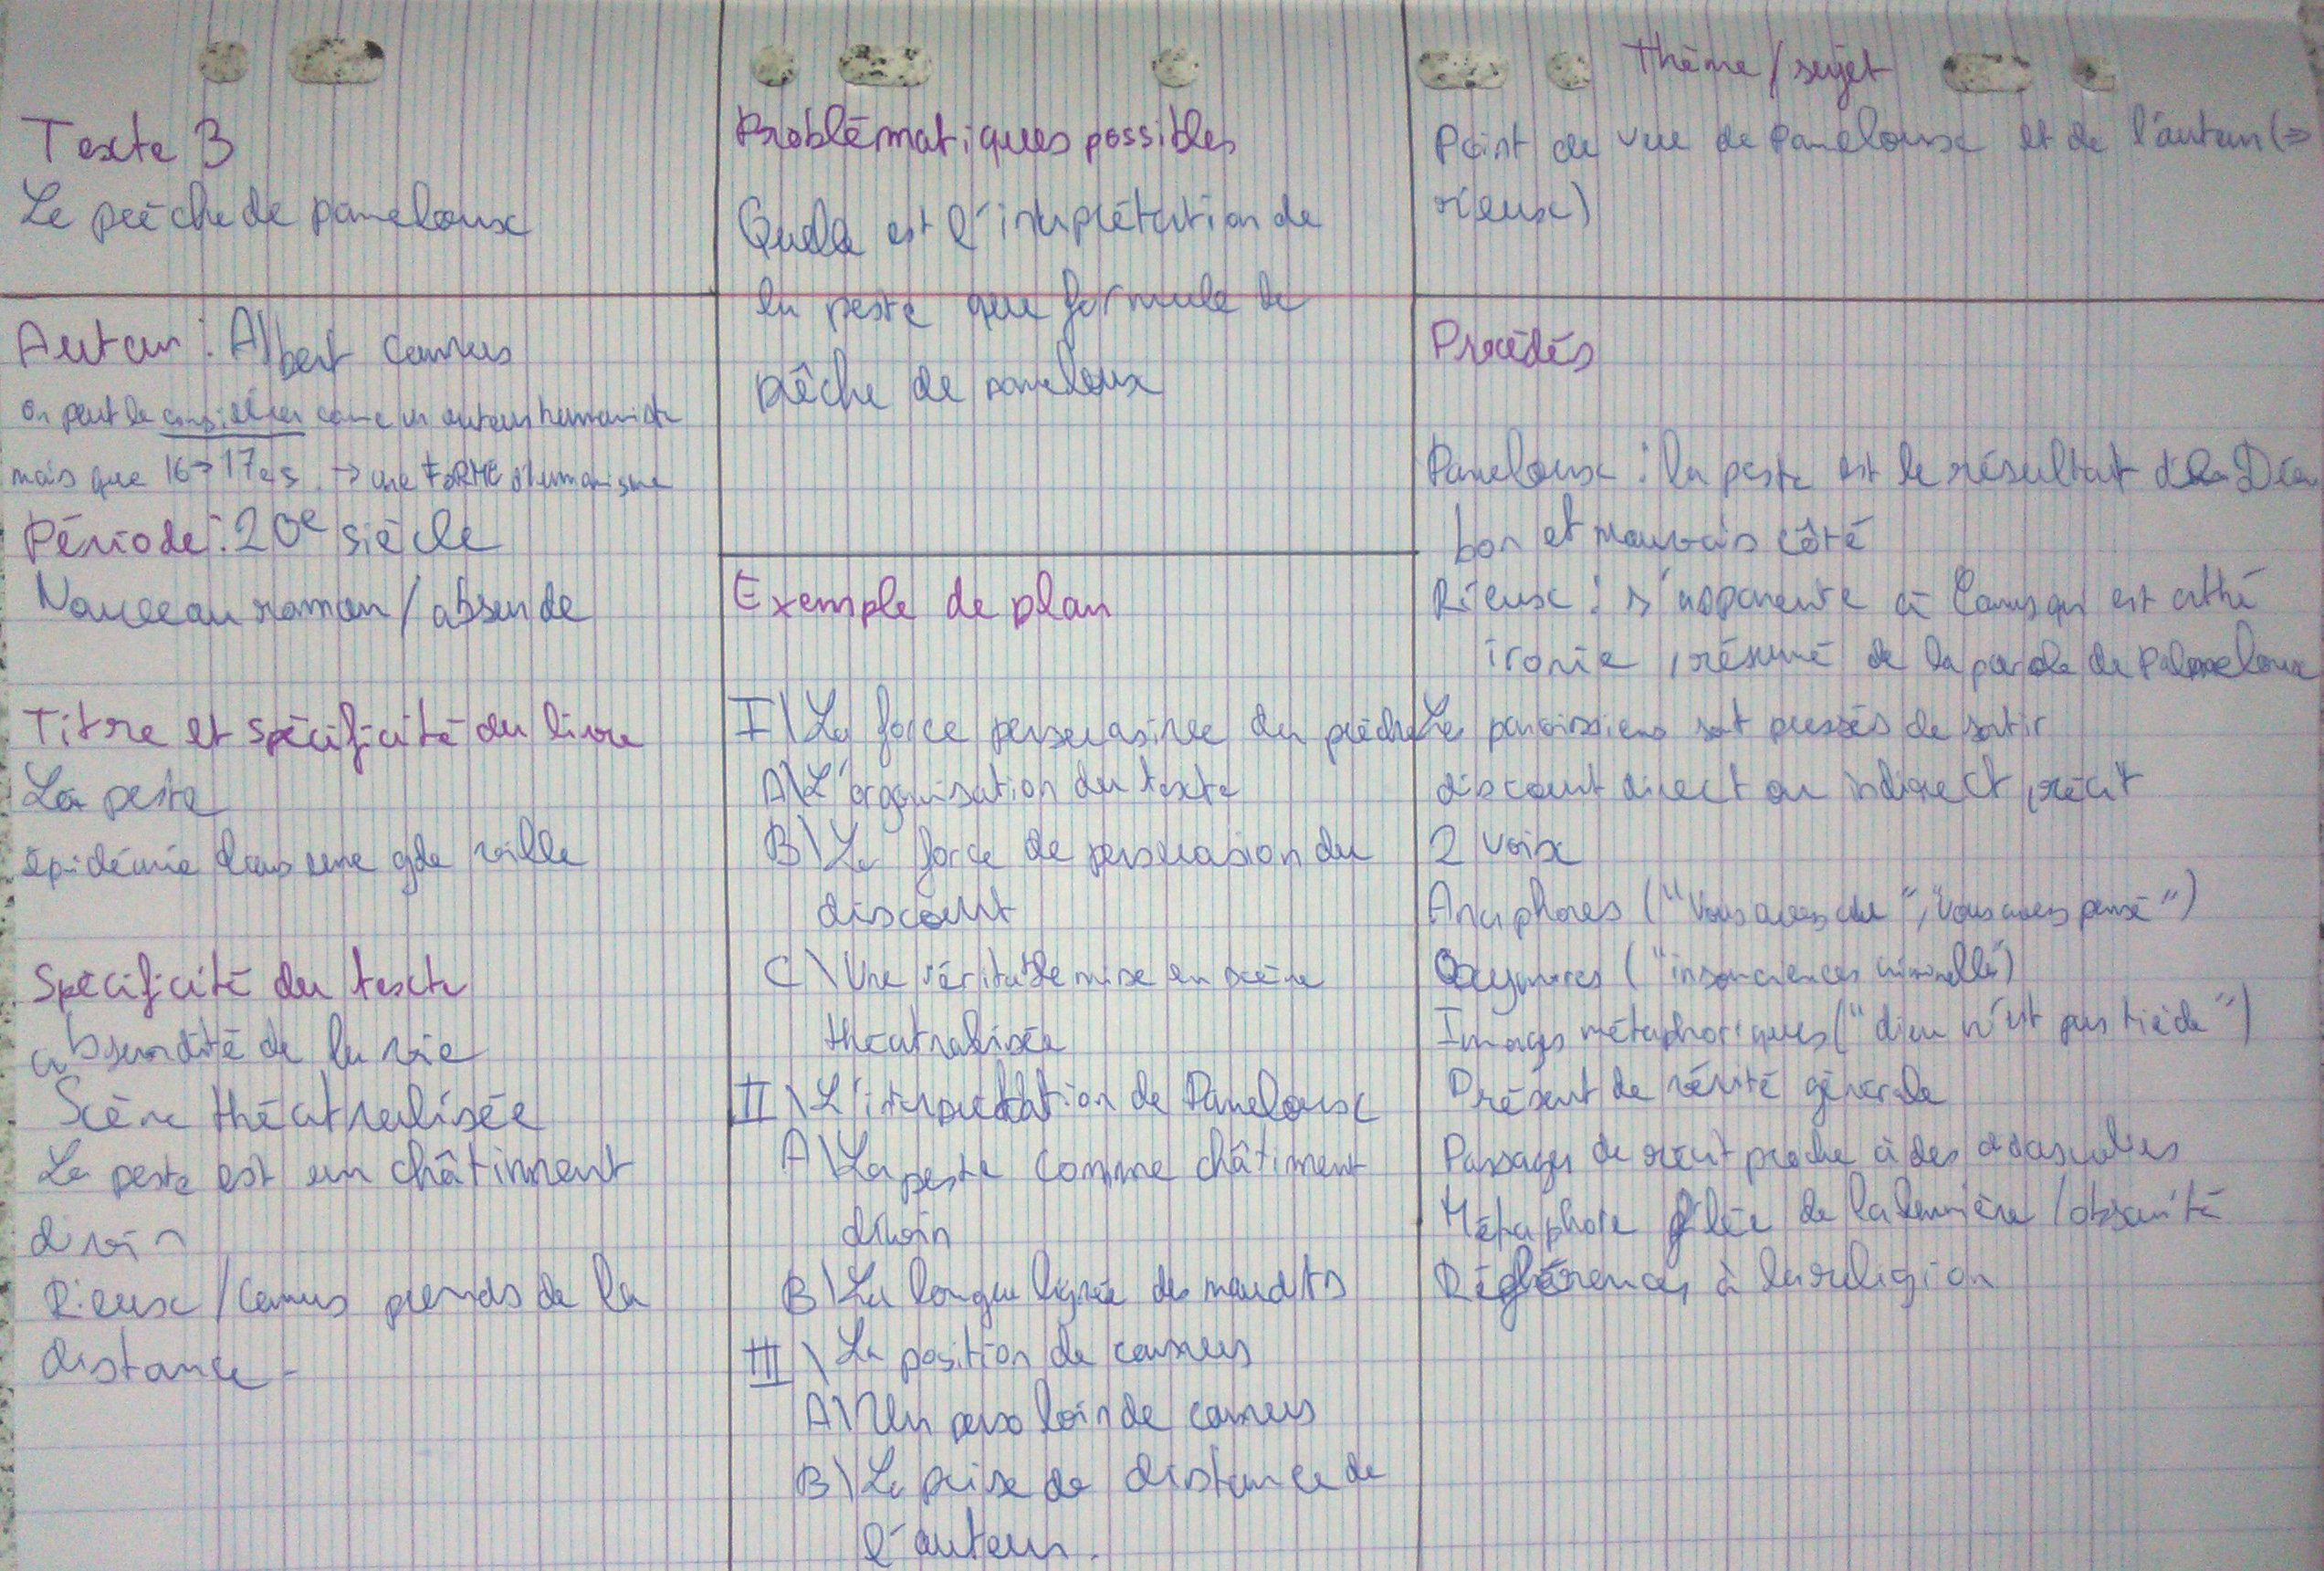 Texte 3
Le prêche de paneloux
Auteur : Albert Camus
on peut le considérer comme un auteur humaniste
mais que 16→17es. → une FORME d'humanisme
Période : 20e siècle
Nouveau roman / absurde
Titre et spécificité du livre
La peste
épidémie dans une gde ville
Spécificité du texte
absurdité de la vie
Scène théatralisée
La peste est un châtiment
divin
Rieux / Camus prends de la
distance.
Problématiques possibles
Quelle est l'interprétation de
la peste que formule le
prêche de paneloux
Exemple de plan
I\ La force persuasive du prêche
A\ L'organisation du texte
B\ La force de persuasion du
discourt
C\ Une véritable mise en scène
théatralisée
II\ L'interprétation de Paneloux
A\ La peste comme châtiment
divin
B\ La longue lignée des maudits
III\ La position de camus
A\ Un perso loin de camus
B\ La prise de distance de
l'auteur.
Thème / sujet
Point de vue de Paneloux et de l'auteur (=>
rieux)
Procédés
Paneloux : la peste est le résultat de Dieu
bon et mauvais côté
Rieux : s'apparente à Camus qui est athé
ironie, résumé de la parole de Paneloux
Les paroissiens sont pressés de sortir
discourt direct ou indirect, récit
2 voix
Anaphores ("Vous avez cru", "Vous avez pensé")
Oxymores ("insouciances criminelles")
Images métaphoriques ("dieu n'est pas tiède")
Présent de vérité générale
Passages de récit proche à des didascalies
Métaphore filée de la lumière / obscurité
Références à la religion